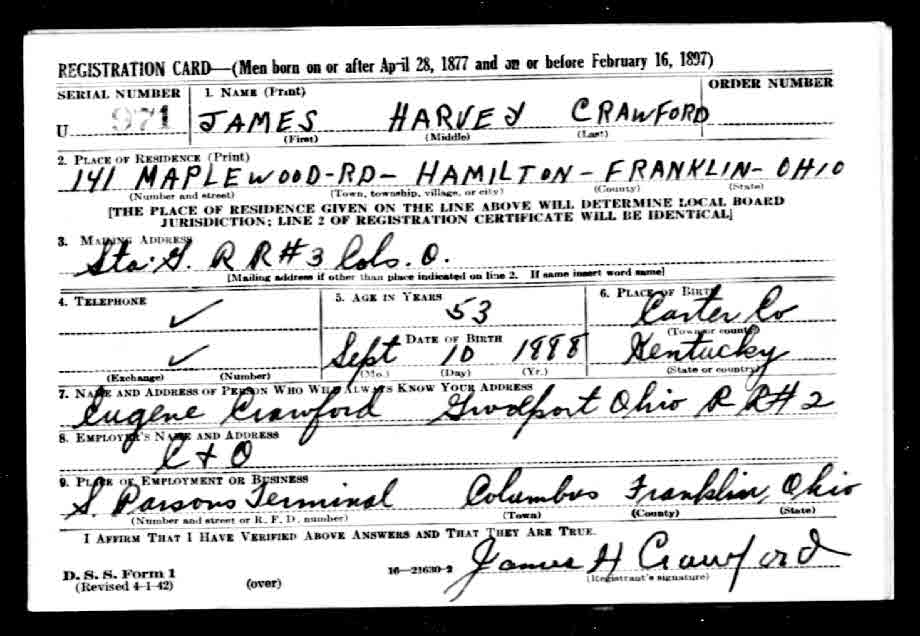 REGISTRATION CARD—(Men born on or after April 28, 1877 and on or before February 16, 1897)
SERIAL NUMBER 1. NAME (Print) ORDER NUMBER
U 971 JAMES HARVEY CRAWFORD
(First) (Middle) (Last)
2. PLACE OF RESIDENCE (Print)
141 MAPLEWOOD-RD- HAMILTON- FRANKLIN- OHIO
(Number and street) (Town, township, village, or city) (County) (State)
[THE PLACE OF RESIDENCE GIVEN ON THE LINE ABOVE WILL DETERMINE LOCAL BOARD
JURISDICTION; LINE 2 OF REGISTRATION CERTIFICATE WILL BE IDENTICAL]
3. MAILING ADDRESS
Sta. G. R R # 3 Cols. O.
[Mailing address if other than place indicated on line 2. If same insert word same]
4. TELEPHONE 5. AGE IN YEARS 6. PLACE OF BIRTH
✓ 53 Carter Co
DATE OF BIRTH (Town or county)
✓ Sept 10 1888 Kentucky
(Exchange) (Number) (Mo.) (Day) (Yr.) (State or country)
7. NAME AND ADDRESS OF PERSON WHO WILL ALWAYS KNOW YOUR ADDRESS
Eugene Crawford Ohio R R # 2
8. EMPLOYER'S NAME AND ADDRESS
C + O
9. PLACE OF EMPLOYMENT OR BUSINESS
S. Parsons Terminal Columbus Franklin, Ohio
(Number and street or R. F. D. number) (Town) (County) (State)
I AFFIRM THAT I HAVE VERIFIED ABOVE ANSWERS AND THAT THEY ARE TRUE.
James H Crawford
D. S. S. Form 1 16—21630-2 (Registrant's signature)
(Revised 4-1-42) (over)